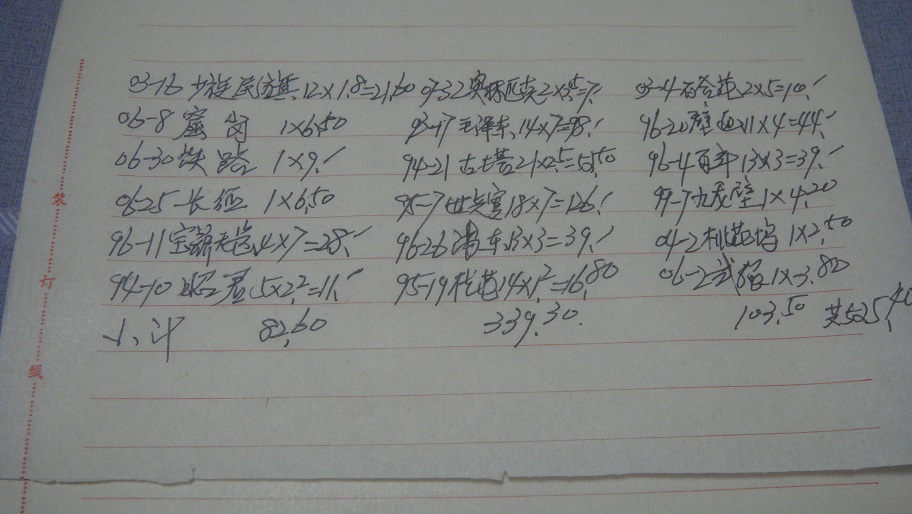 03-16 少林民旗 12×1.8=21.60 07-32 奥林匹克 2×3.5=7.
03-4 百合花 2×5=10.
06-8 蜜 岗 1×6.50 93-17 毛泽东 14×7=98. 96-20 壁画 11×4=44.
06-30 铁路 1×9. 94-21 古塔 21×2.5=52.50 96-4 百年 13×3=39.
06-25 长征 1×6.50 95-7 世乒赛 18×7=126. 99-7 九龙壁 1×4.20
装
96-11 4×7=28. 96-26 13×3=39. 04-2 桃花坞 1×2.50
订
94-10 昭君 5×2.2=11. 95-19 桂花 14×1.2=16.80 06-2 武强 1×3.80
小计 82.60 339.30. 103.50 共525.40
线